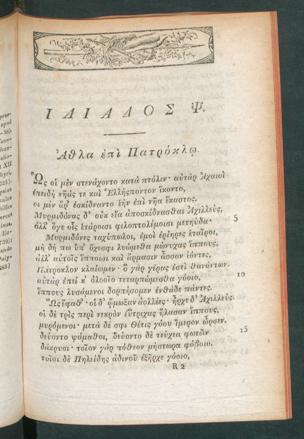 ΙΛΙΑΔΟΣ Ψ.
Ἆθλα ἐπὶ Πατρόκλῳ.
Ὣς οἱ μὲν στενάχοντο κατὰ πτόλιν· αὐτὰρ Ἀχαιοὶ
ἐπειδὴ νῆάς τε καὶ Ἑλλήσποντον ἵκοντο,
οἱ μὲν ἂρ ἐσκίδναντο ἑὴν ἐπὶ νῆα ἕκαστος.
Μυρμιδόνας δ' οὐκ εἴα ἀποσκίδνασθαι Ἀχιλλεύς,
ἀλλ' ὅγε οἷς ἑτάροισι φιλοπτολέμοισι μετηύδα· 5
Μυρμιδόνες ταχύπωλοι, ἐμοὶ ἐρίηρες ἑταῖροι,
μὴ δή πω ὑπ' ὄχεσφι λυώμεθα μώνυχας ἵππους,
ἀλλ' αὐτοῖς ἵπποισι καὶ ἅρμασιν ἆσσον ἰόντες,
Πάτροκλον κλαίωμεν· ὃ γὰρ γέρας ἐστὶ θανόντων.
αὐτὰρ ἐπεί κ' ὀλοοῖο τεταρπώμεσθα γόοιο, 10
ἵππους λυσάμενοι δορπήσομεν ἐνθάδε πάντες.
Ὣς ἔφαθ'· οἱ δ' ᾤμωξαν ἀολλέες· ἦρχε δ' Ἀχιλλεύς.
οἱ δὲ τρὶς περὶ νεκρὸν ἐΰτριχας ἤλασαν ἵππους,
μυρόμενοι· μετὰ δέ σφι Θέτις γόου ἵμερον ὦρσεν.
δεύοντο ψάμαθοι, δεύοντο δὲ τεύχεα φωτῶν 15
δάκρυσι· τοῖον γὰρ πόθεον μήστωρα φόβοιο.
τοῖσι δὲ Πηλείδης ἁδινοῦ ἐξῆρχε γόοιο,
R 2